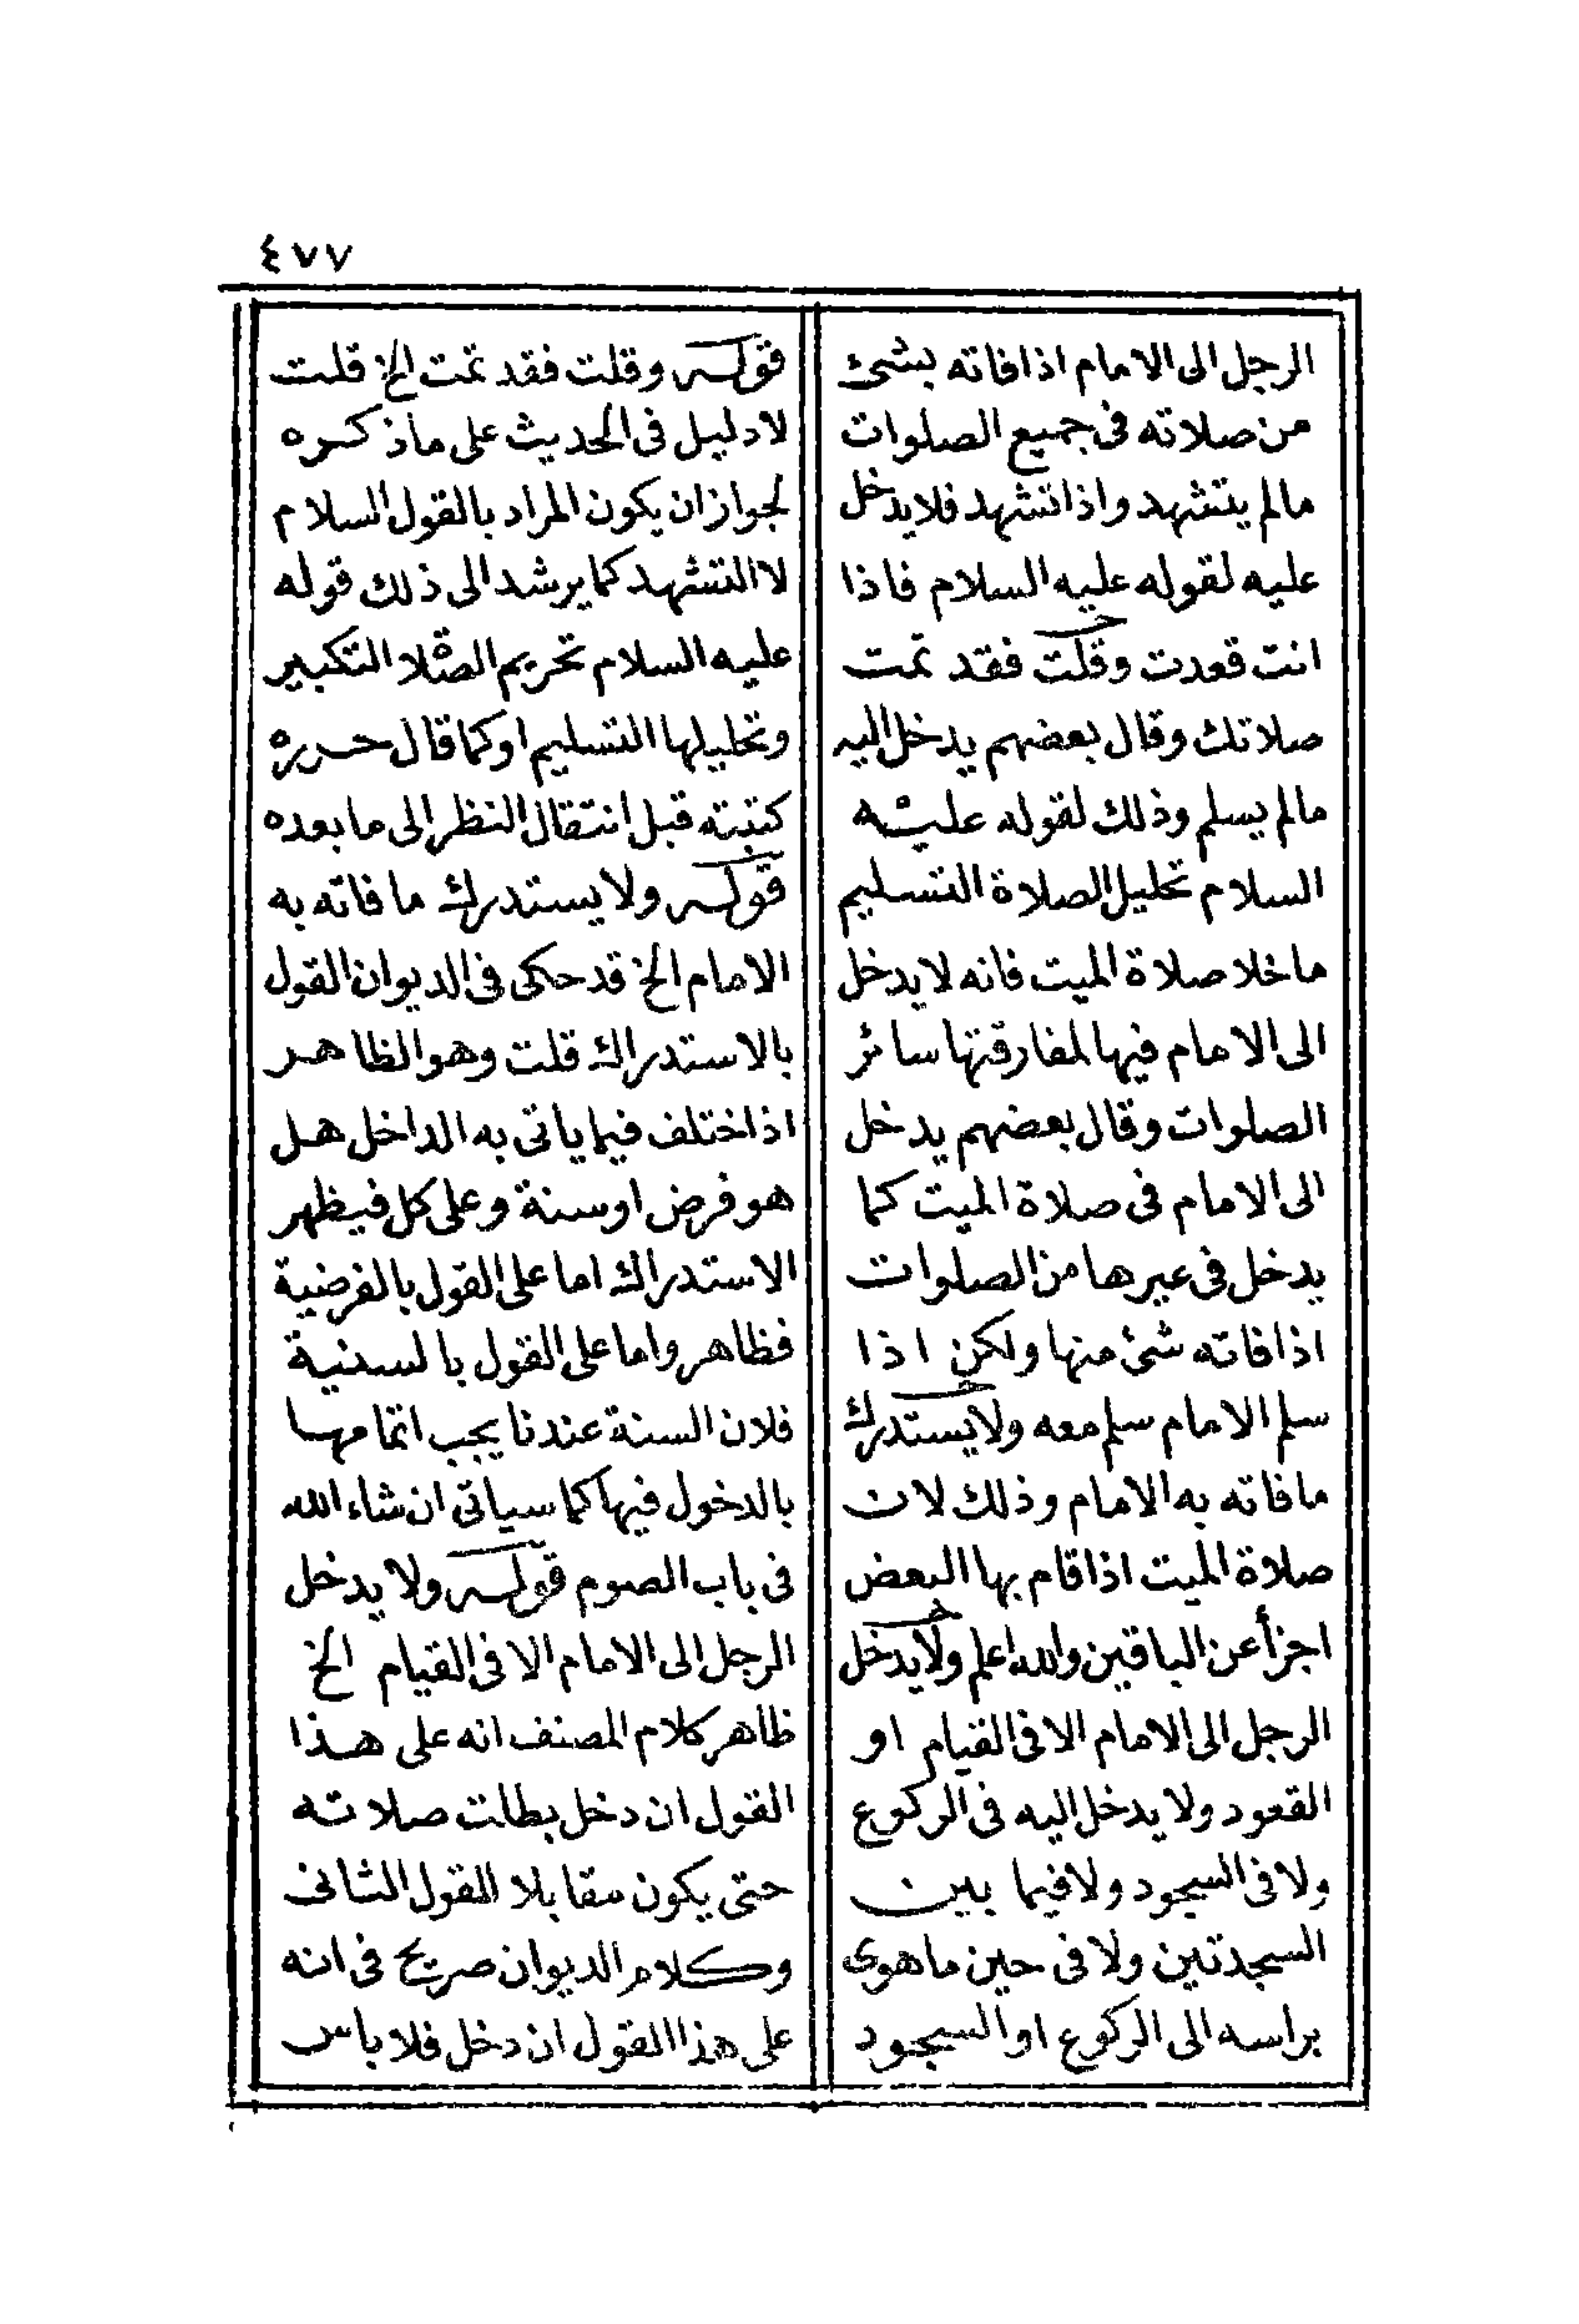 ٤٧٧
الرجل الى الامام اذا فاته بشئ
من صلاته فى جميع الصلوات
مالم يتشهد واذا تشهد فلا يدخل
عليه لقوله عليه السلام فاذا
انت قعدت وقلت فقد تمت
صلاتك وقال بعضهم يدخل اليه
مالم يسلم وذلك لقوله عليه
السلام تحليل الصلاة التسليم
ما خلا صلاة الميت فانه لا يدخل
الى الامام فيها لمفارقتها سائر
الصلوات وقال بعضهم يدخل
الى الامام فى صلاة الميت كما
يدخل فى عيرها من الصلوات
اذا فاته شئ منها ولكن اذا
سلم الامام سلم معه ولا يستدرك
ما فاته به الامام وذلك لان
صلاة الميت اذا قام بها البعض
اجزأ عن الباقين والله اعلم ولا يدخل
الرجل الى الامام الا فى القيام او
القعود ولا يدخل اليه فى الركوع
ولا فى السجود ولا فيما بين
السجدتين ولا فى حين ما هوى
براسه الى الركوع او السجود
قوله وقلت فقد تمت الخ قلت
لا دليل فى الحديث على ما ذكره
لجواز ان يكون المراد بالقول السلام
لا التشهد كما يرشد الى ذلك قوله
عليه السلام تحريم الصلاة التكبير
وتحليلها التسليم او كما قال حرره
كتبته قبل انتقال النظر الى ما بعده
قوله ولا يستدرك ما فاته به
الامام الخ قد حكى فى الديوان القول
بالاستدراك قلت وهو الظاهر
اذا ختلف فيما ياتى به الداخل هل
هو فرض او سنة وعلى كل فيظهر
الاستدراك اما على القول بالفرضية
فظاهر واما على القول بالسنية
فلان السنة عندنا يجب اتمامها
بالدخول فيها كما سياتى ان شاء الله
فى باب الصوم قوله ولا يدخل
الرجل الى الامام الا فى القيام الخ
ظاهر كلام المصنف انه على هذا
القول ان دخل بطلت صلاته
حتى يكون مقابلا للقول الثانى
وكلام الديوان صريح فى انه
على هذا القول ان دخل فلا باس